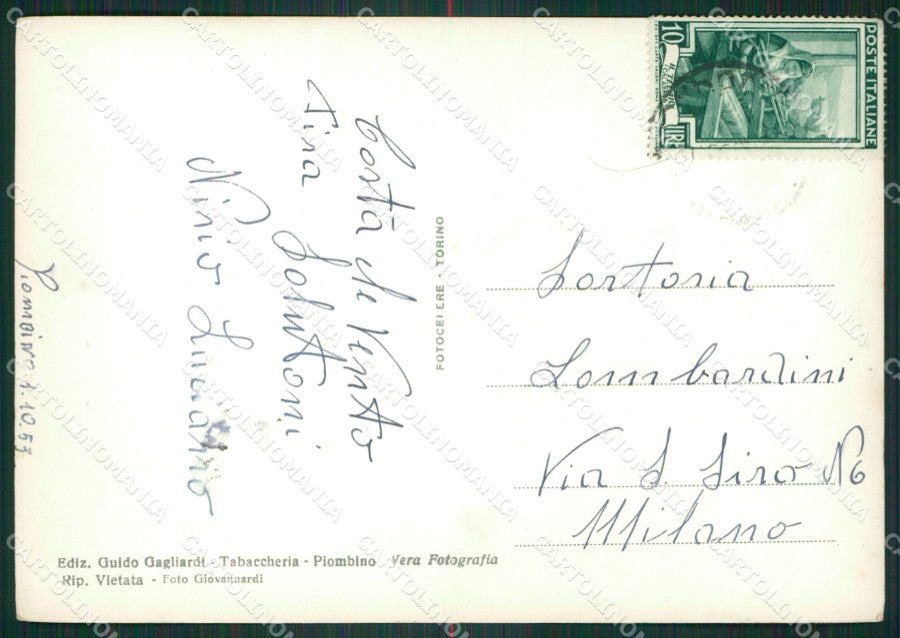 Costà che Vento
Tina Salutoni
Nino Luciano
Piombino 1.10.53
FOTOCELERE - TORINO
Ediz. Guido Gagliardi - Tabaccheria - Piombino Vera Fotografia
Rip. Vietata - Foto Giovannardi
10 LIRE
POSTE ITALIANE
Sartoria
Lombardini
Via S. Siro No
Milano
CARTOLINOMANIA